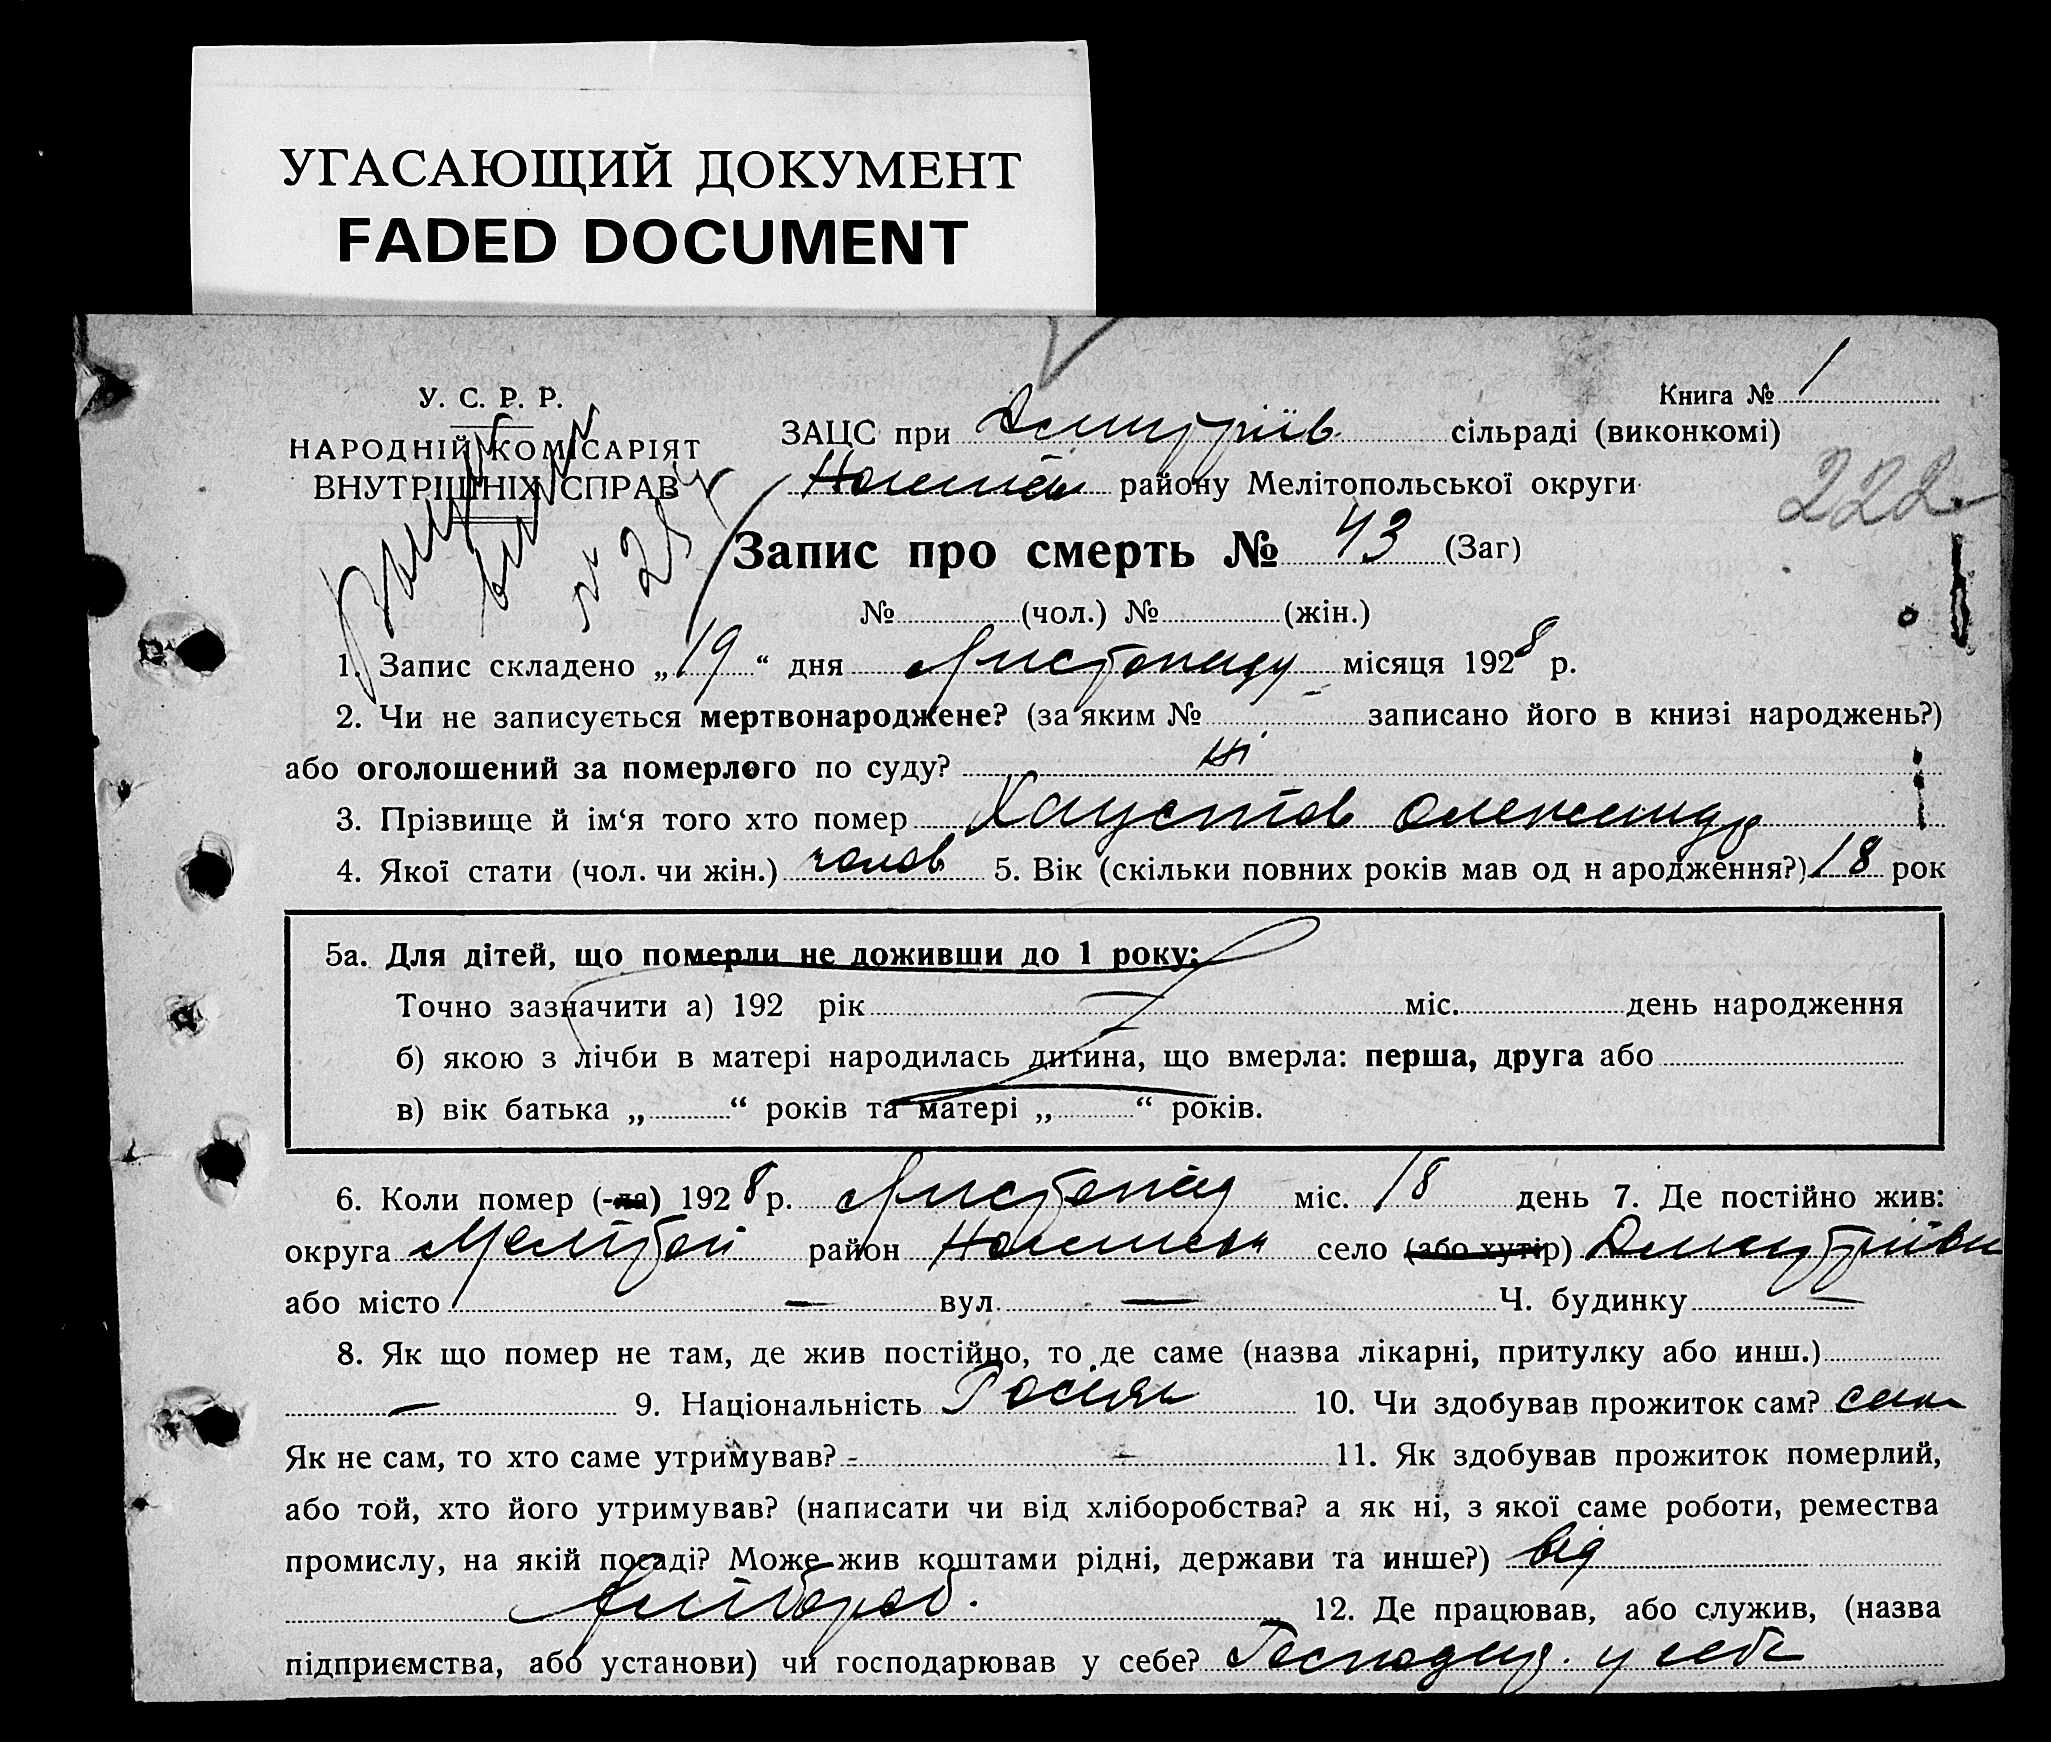 УГАСАЮЩИЙ ДОКУМЕНТ
FADED DOCUMENT
Книга № 1
У. С. Р. Р.
НАРОДНІЙ КОМІСАРІЯТ
ВНУТРІШНІХ СПРАВ
ЗАЦС при Дмитріїв. сільраді (виконкомі)
району Мелітопольської округи
222
Запис про смерть № 43 (Заг)
№ (чол.) № (жін.)
1. Запис складено „19“ дня Листопаду місяця 1928 р.
2. Чи не записується мертвонароджене? (за яким № записано його в книзі народжень?)
або оголошений за померлого по суду? ні
3. Прізвище й ім‘я того хто помер Хаустов Олександр
4. Якої стати (чол. чи жін.) чолов 5. Вік (скільки повних років мав од н ародження?) 18 рок
5а. Для дітей, що померли не доживши до 1 року:
Точно зазначити а) 192 рік міс. день народження
б) якою з лічби в матері народилась дитина, що вмерла: перша, друга або
в) вік батька „ “ років та матері „ “ років.
6. Коли помер (-ла) 1928 р. Листопад міс. 18 день 7. Де постійно жив:
округа Меліт район село (або хутір) Дмитріївка
або місто — вул. — Ч. будинку —
8. Як що помер не там, де жив постійно, то де саме (назва лікарні, притулку або инш.)
— 9. Національність Росіян 10. Чи здобував прожиток сам? сам
Як не сам, то хто саме утримував? - — 11. Як здобував прожиток померлий,
або той, хто його утримував? (написати чи від хліборобства? а як ні, з якої саме роботи, ремества
промислу, на якій посаді? Може жив коштами рідні, держави та инше?) від
хлібороб. 12. Де працював, або служив, (назва
підприємства, або установи) чи господарював у себе? Господар. у себе